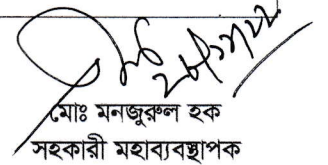 মোঃ মনজুরুল হক
সহকারী মহাব্যবস্থাপক